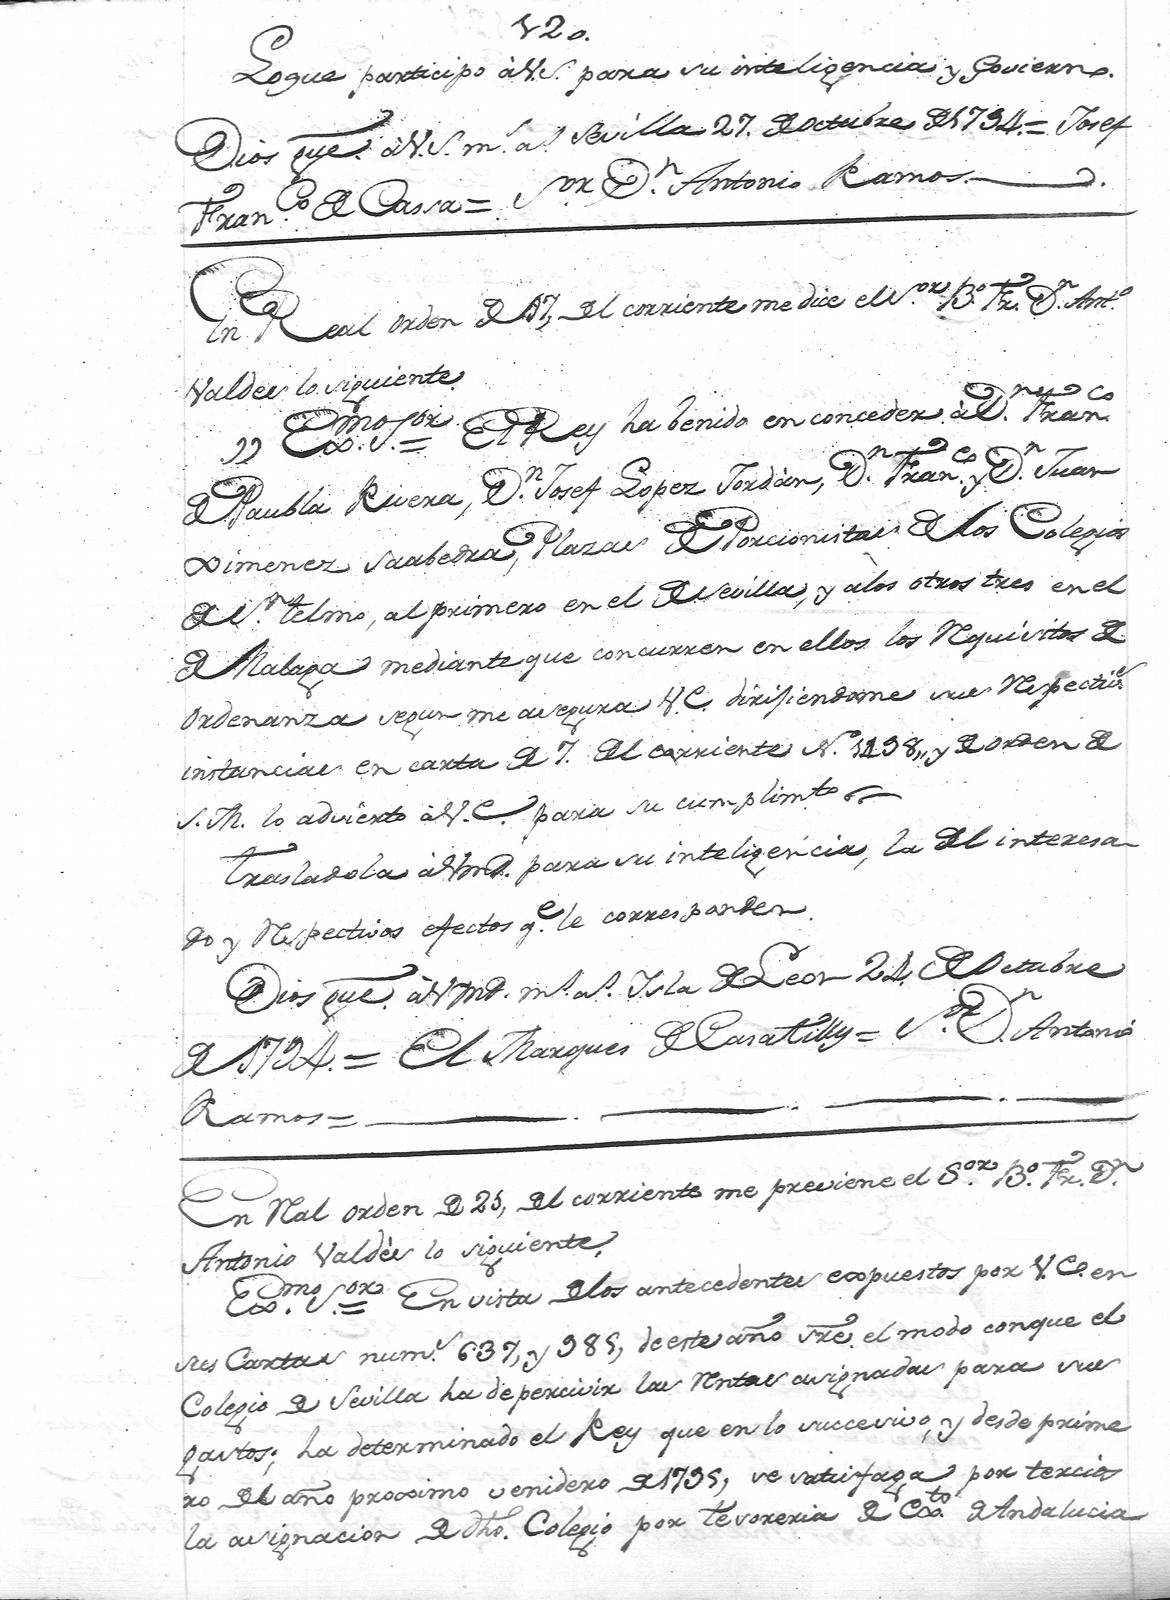 V2o.
Loque participo à V.S. para su inteligencia y Govierno.
Dios gue. à V.S. ms. as. Sevilla 27. de Octubre de 1794.= Josef
Franco. de Cassa= Sor. Dn. Antonio Ramos.
En Real orden de 17, del corriente me dice el Sor. Bo. Fr. Dn. Anto.
Valdes lo siguiente
,, Exmo. Sor.= El Rey ha benido en conceder à Dn. Franco.
de Paubla Rivera, Dn. Josef Lopez Jordàn, Dn. Franco. y Dn. Juan
Ximenez Saabedra, Plazas de Porcionistas de los Colegios
de Sn. telmo, al primero en el de Sevilla, y alos otros tres en el
de Malaga mediante que concurren en ellos los Requisitos de
ordenanza segun me asegura V.E. dirijiendome sus Respectivas
instancias en carta de 7. del corriente No. 1198,, y de orden de
S.M. lo advierto à V.E. para su cumplimto.
Trasladola à Vmd. para su inteligencia, la del interesa
do y Respectivos efectos qe. le corresponden.
Dios gue. à Vmd. ms. as. Isla de Leon 24. de Octubre
de 1794.= El Marques de Casa tilly= Sor. Dn. Antonio
Ramos=
En Rl. orden de 25, del corriente me previene el Sor. Bo. Fr. Dn.
Antonio Valdès lo siguiente,
Exmo. Sor.= En vista delos antecedentes expuestos por V.E. en
sus Cartas nums. 637, y 985, de este año sre. el modo conque el
Colegio de Sevilla ha de percivir las Rentas asignadas para sus
gastos; ha determinado el Rey que en lo succesivo, y desde prime
ro del año proximo venidero de 1795, se satisfaga por tercios
la asignacion de dho. Colegio por tesoreria de Exto. de Andalucia